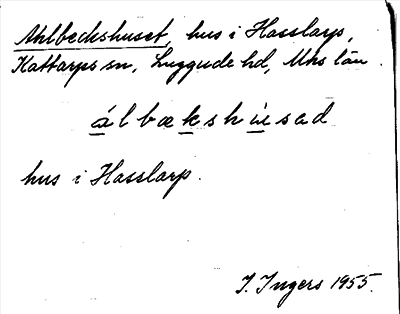 Ahlbeckshuset, hus i Hasslarp,
Kattarps sn, Luggude hd, Mhs län.
álbækshúsad
hus i Hasslarp.
I. Ingers 1955.